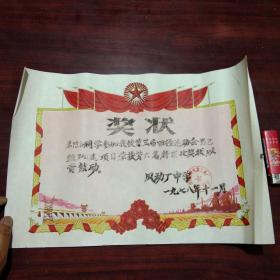 奖状
同学参加我校第三届田径运动会男乙
项目荣获第六名特发此奖状以
资鼓励。
风动厂中学
一九七八年十一月